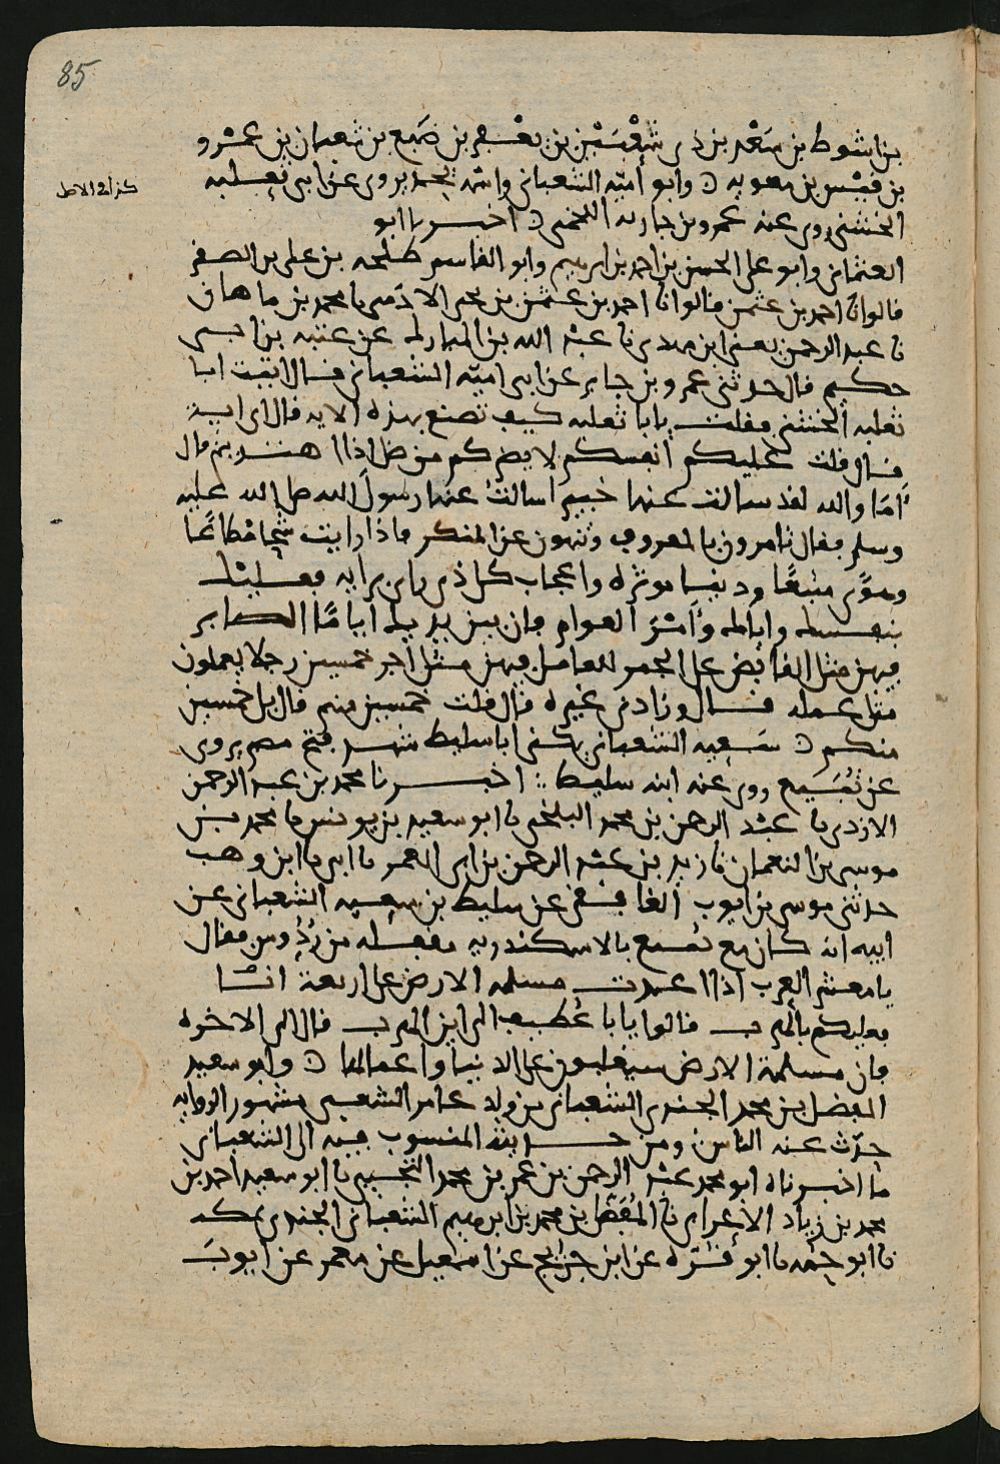 85
بن اشوط بن سَعْد بن ذى شَعْبَيْن بن يعْفر بن ضَبع بن شعبان بن عمْرو
بن قيْس بن معويه ن وابو أُميّه الشعبانى واسْمه يحمد يروى عن ابى ثعلبه
كذا فى الاصل
الخشنى روى عنه عمرو بن جاريه اللخمى ن اخبرنا ابو
العثمانى وابو على الحسن بن احمد بن ابرهيم وابو القاسم طلحه بن على بن الصقر
قالوا نا احمد بن عثمن قالوا نا احمد بن عثمن بن يحيى الادَمى نا محمد بن ماهان
نا عبد الرحمن يعنى ابن مهدى نا عبد الله بن المبارك عن عتبه بن ابى
حكيم قال حدثنى عمرو بن جابر عن ابى اميّه الشعبانى قال لقيت ابا
ثعلبه الخشنى فقلت يابا ثعلبه كيف تصنع بهذه الايه قال اى ايه
قال قلت عليكم أنفسكم لا يضركم من ضل اذا اهتديتم قال
أمَا والله لقد سالت عنها خبيرا سالتُ عنها رسول الله صلى الله عليه
وسلم فقال تامرون بالمعروف وتنهون عن المنكر فاذا رايت شُحًّا مُطَاعًا
وهوًى متبعًا ودنيا موثره واعجاب كل ذى راى برايه فعليك
بنفسك واياك وأمْرَ العوام فان بين يديك ايامًا الصابر
فيهن مثل القابض على الجمر للعامل فيهن مثل أجر خمسين رجلا يعملون
مثل عمله قال وزادنى غيره قال قلت خمسين منهم قال بل خمسين
منكم ن سَعيد الشعبانى يكنى ابا سليط شهد فتح مصر يروى
عن تُبَيع روى عنه ابنه سليط :: اخبرنا محمد بن عبد الرحمن
الازدى نا عبْد الرحمن بن محمد البلخى نا ابو سعيد بن يونس نا محمد بن
موسى بن النعمان نا زيد بن عبْد الرحمن بن ابى الغمر نا ابى نا ابن وهب
حدثنى موسى بن ايوب الغافقى عن سليط بن سعيد الشعبانى عن
ابيه انه كان مع تُبيع بالاسكندريه مقفله من رُذُوس فقال
يا معشر العرب اذا عبدت مسلمه الارض على اربعة انشا
فعليكم بالهرب قالوا يابا غُطيف الى اين الهرب قال الى الاخره
فان مسلمة الارض سيغلبون على الدنيا واعمالها ن وابو سعيد
المفضل بن محمد الجندى الشعبانى من ولد عامر الشعبى مشهور الروايه
حدّث عنه الناس ومن حديثه المنسوب فيه الى الشعبانى
ما اخبرناه ابو محمد عبْد الرحمن بن عمر بن محمد التُجيبى نا ابو سعيد احمد بن
محمد بن زياد الأعرابى نا المُفَضّل بن محمد بن ابرهيم الشعبانى الجندى بمكه
نا ابو حُمه نا ابو قُرّه عن ابن جُرَيج عن اسمعيل عن معمر عن ايوبَ